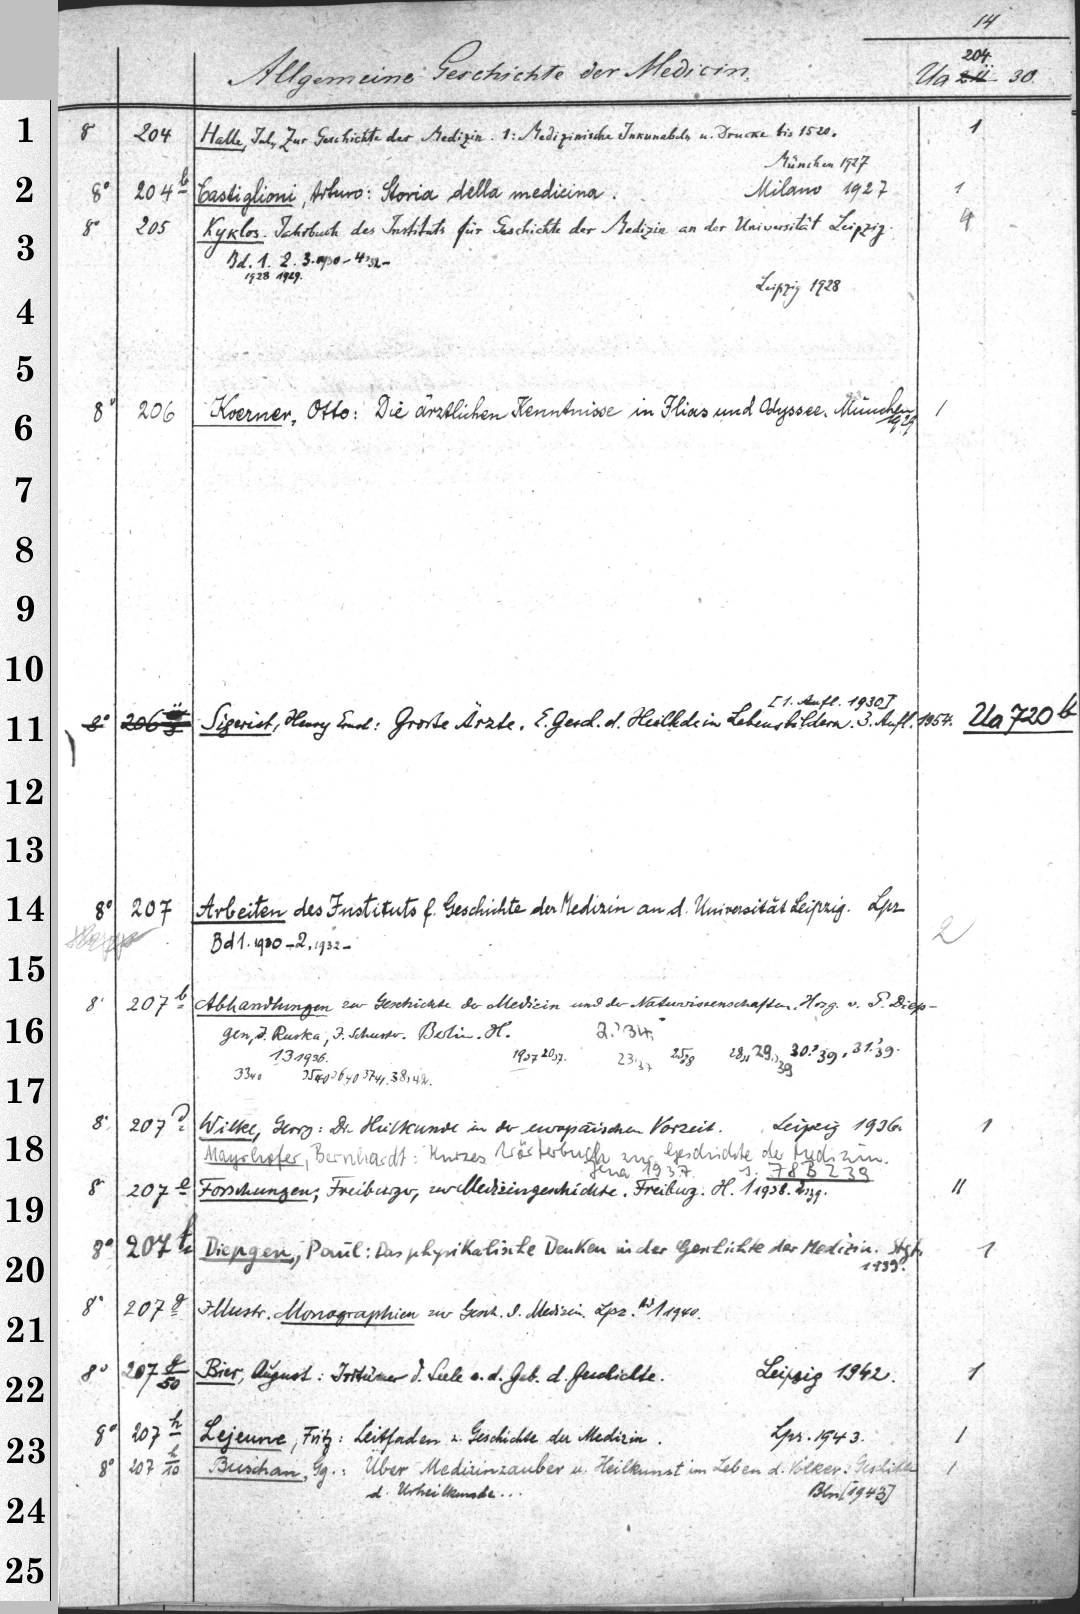 14
Allgemeine Geschichte der Medicin.
204
Ua 211 30.
1 8° 204 Halle, Jul., Zur Geschichte der Medizin. 1: Medizinische Inkunabeln u. Drucke bis 1520. 1
München 1927
2 8° 204b Castiglioni, Arturo: Storia della medicina. Milano 1927 1
3 8° 205 Kyklos. Jahrbuch des Instituts für Geschichte der Medizin an der Universität Leipzig. 4
Bd. 1. 2. 3.1930-4.1932-
1928 1929.
4 Leipzig 1928
5
6 8° 206 Koerner, Otto: Die ärztlichen Kenntnisse in Ilias und Odyssee. München 1
1929
7
8
9
10
[1. Aufl. 1930]
11 8° 206 Sigerist, Henry Ernst: Große Ärzte. E. Gesch. d. Heilkde in Lebensbildern. 3. Aufl. 1954. Ua 720b
12
13
14 8° 207 Arbeiten des Instituts f. Geschichte der Medizin an d. Universität Leipzig. Lpz
2
Bd 1.1930-2.1932-
15
8° 207b Abhandlungen zur Geschichte der Medicin und der Naturwissenschaften. Hrsg. v. P. Diep-
16 gen, J. Ruska, J. Schuster. Berlin. H. 2.34.
13 1936. 1937 2037. 23.37 2538 28, 29,39 30.39, 31.39.
17 3340 3540 3640 3741, 38,42.
8° 207d Wilke, Georg: Die Heilkunde in der europäischen Vorzeit. Leipzig 1936. 1
18 Mayrhofer, Bernhardt: Kurzes Wörterbuch zur Geschichte der Medizin.
Jena 1937 s. 78 B 239
19 8° 207e Forschungen, Freiburger, zur Medizingeschichte. Freiburg. H. 1 1938. 2 1939. 11
20 8° 207f Diepgen, Paul: Das physikalische Denken in der Geschichte der Medizin. Stgt. 1
1939.
21 8° 207g Illustr. Monographien zur Gesch. d. Medizin. Lpz. Bd 1 1940.
22 8° 207g/50 Bier, August: Irrtümer d. Seele a. d. Geb. d. Geschichte. Leipzig 1942. 1
23 8° 207h Lejeune, Fritz: Leitfaden z. Geschichte der Medizin. Lpz. 1943. 1
8° 207h/10 Buschan, Gg.: Über Medizinzauber u. Heilkunst im Leben d. Völker. Geschichte 1
24 d. Urheilkunde... Bln [1943]
25